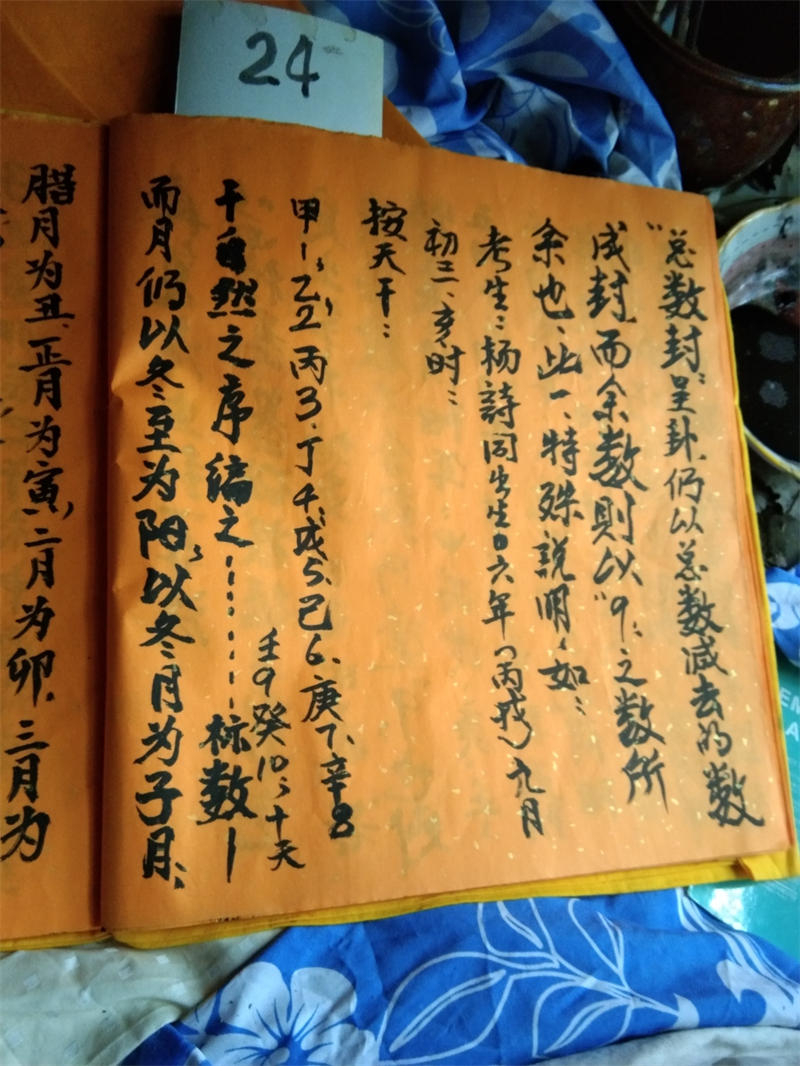 24
"总数封:呈卦、仍以总数减去的数
成封,而余数则以"9"之数所
余也、此一、特殊説明,如:
考生:杨詩同出生日六年(丙戌)九月
初三、亥时:
按天干:
甲1、乙2、丙3、丁4、戊5、己6、庚7、辛8
壬9癸10、十天
干自然之序編之……标数一
而月仍以冬至为阳,以冬月为子月、
腊月为丑、正月为寅,二月为卯、三月为